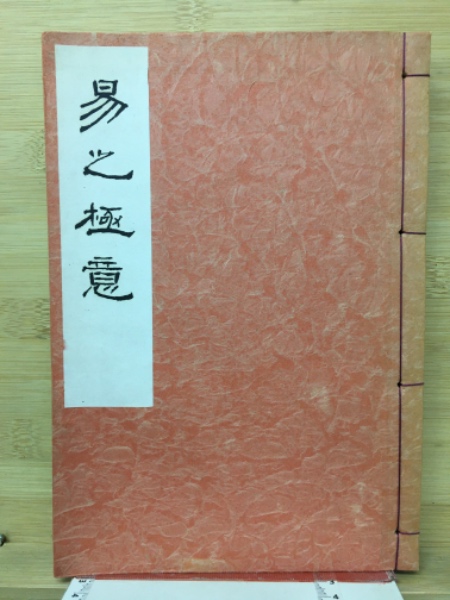 易之極意